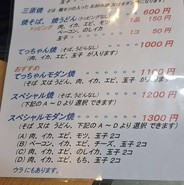 三原焼 600円
焼そば、焼うどん
トッピング 肉、イカ、エビ、モツ 1品 150円
ベーコン、のしイカ
てっちゃん焼（そば、うどんなし） 1000円
（肉、イカ、エビ、玉子 が入ります）
おすすめ
てっちゃんモダン焼 1100円
（そば 又は うどん、肉、イカ、エビ、玉子 入り）
スペシャル焼（そば、うどんなし） 1200円
（下記の A～D より 選択 できます）
スペシャルモダン焼 1300円
（そば 又は うどん、下記の A～D より 選択 できます）
(A) 肉、イカ、エビ、モツ、玉子 2コ
(B) ベーコン、イカ、エビ、チーズ、玉子 2コ
(C) 肉、イカ、エビ、のしイカ、玉子 2コ
(D) 肉、イカ、エビ、もち、玉子 2コ
ウラ にもあります。